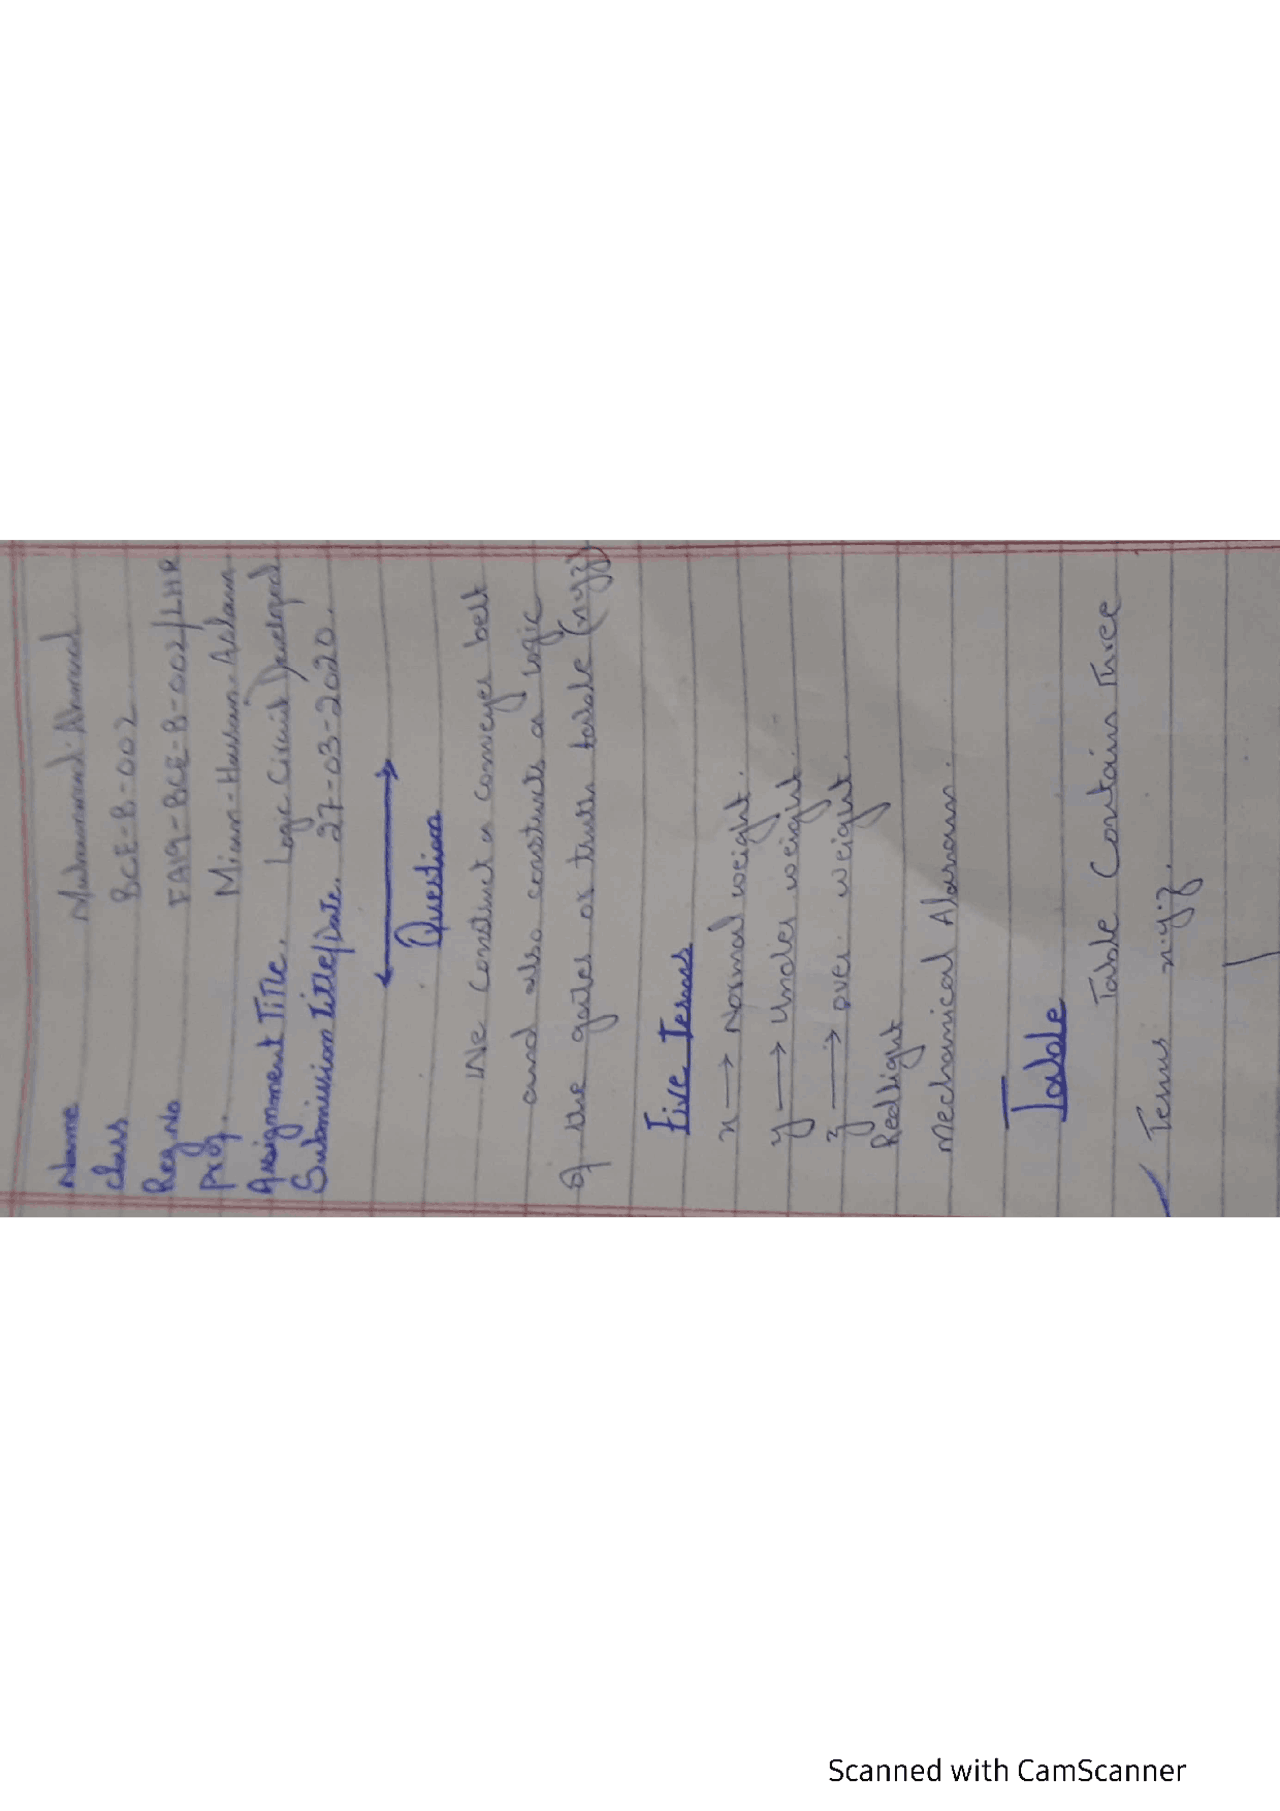 Name Muhammad Ahmad
Class BCE-B-002
Reg.No FA19-BCE-B-002/LHR
Prof. Mian-Hassan-Aslam
Assignment Title. Logic Circuit Developed
Submission title/Date. 27-03-2020.
Question
We Construct a conveyer belt
and also constructs a logic
of the gates or truth table (xyz)
Five Terms
x → Normal weight.
y → Under weight.
z → over weight.
Redlight
Mechanical Alaram.
Table
Table Contain Three
Terms x.y.z.
Scanned with CamScanner